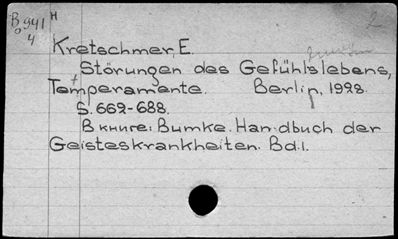 B 941 H
4
2
Kretschmer, E.
Störungen des Gefühlslebens,
Temperamente. Berlin, 1928.
S. 669-688.
В книге: Bumke. Handbuch der
Geisteskrankheiten. Bd.1.